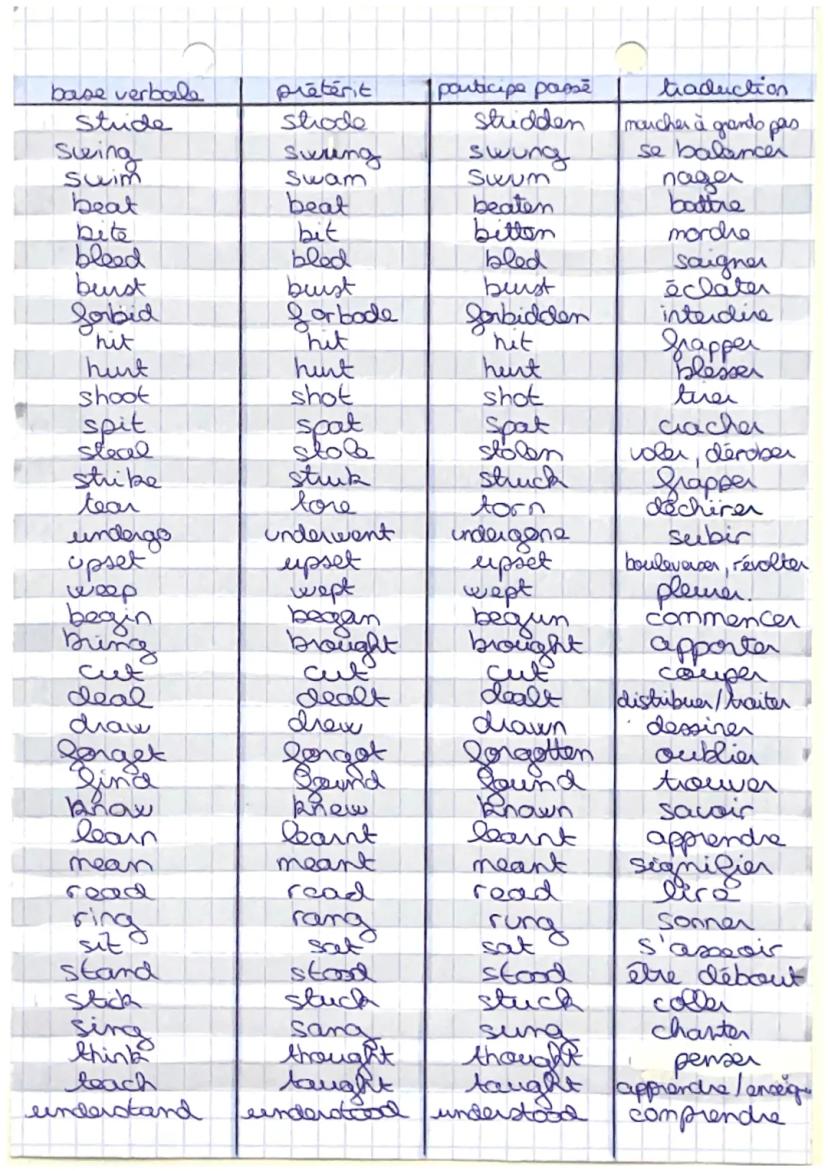 base verbale prétérit participe passé traduction
stride strode stridden marcher à grands pas
swing swung swung se balancer
swim swam swum nager
beat beat beaten battre
bite bit bitten mordre
bleed bled bled saigner
burst burst burst éclater
forbid forbade forbidden interdire
hit hit hit frapper
hurt hurt hurt blesser
shoot shot shot tirer
spit spat spat cracher
steal stole stolen voler, dérober
strike struk struck frapper
tear tore torn déchirer
undergo underwent undergone subir
upset upset upset bouleverser, révolter
weep wept wept pleurer.
begin began begun commencer
bring brought brought apporter
cut cut cut couper
deal dealt dealt distribuer/traiter
draw drew drawn dessiner
forget forgot forgotten oublier
find found found trouver
know knew known savoir
learn learnt learnt apprendre
mean meant meant signifier
read read read lire
ring rang rung sonner
sit sat sat s'assoir
stand stood stood être débout
stick stuck stuck coller
sing sang sung chanter
think thought thought penser
teach taught taught apprendre/enseig
understand understood understood comprendre